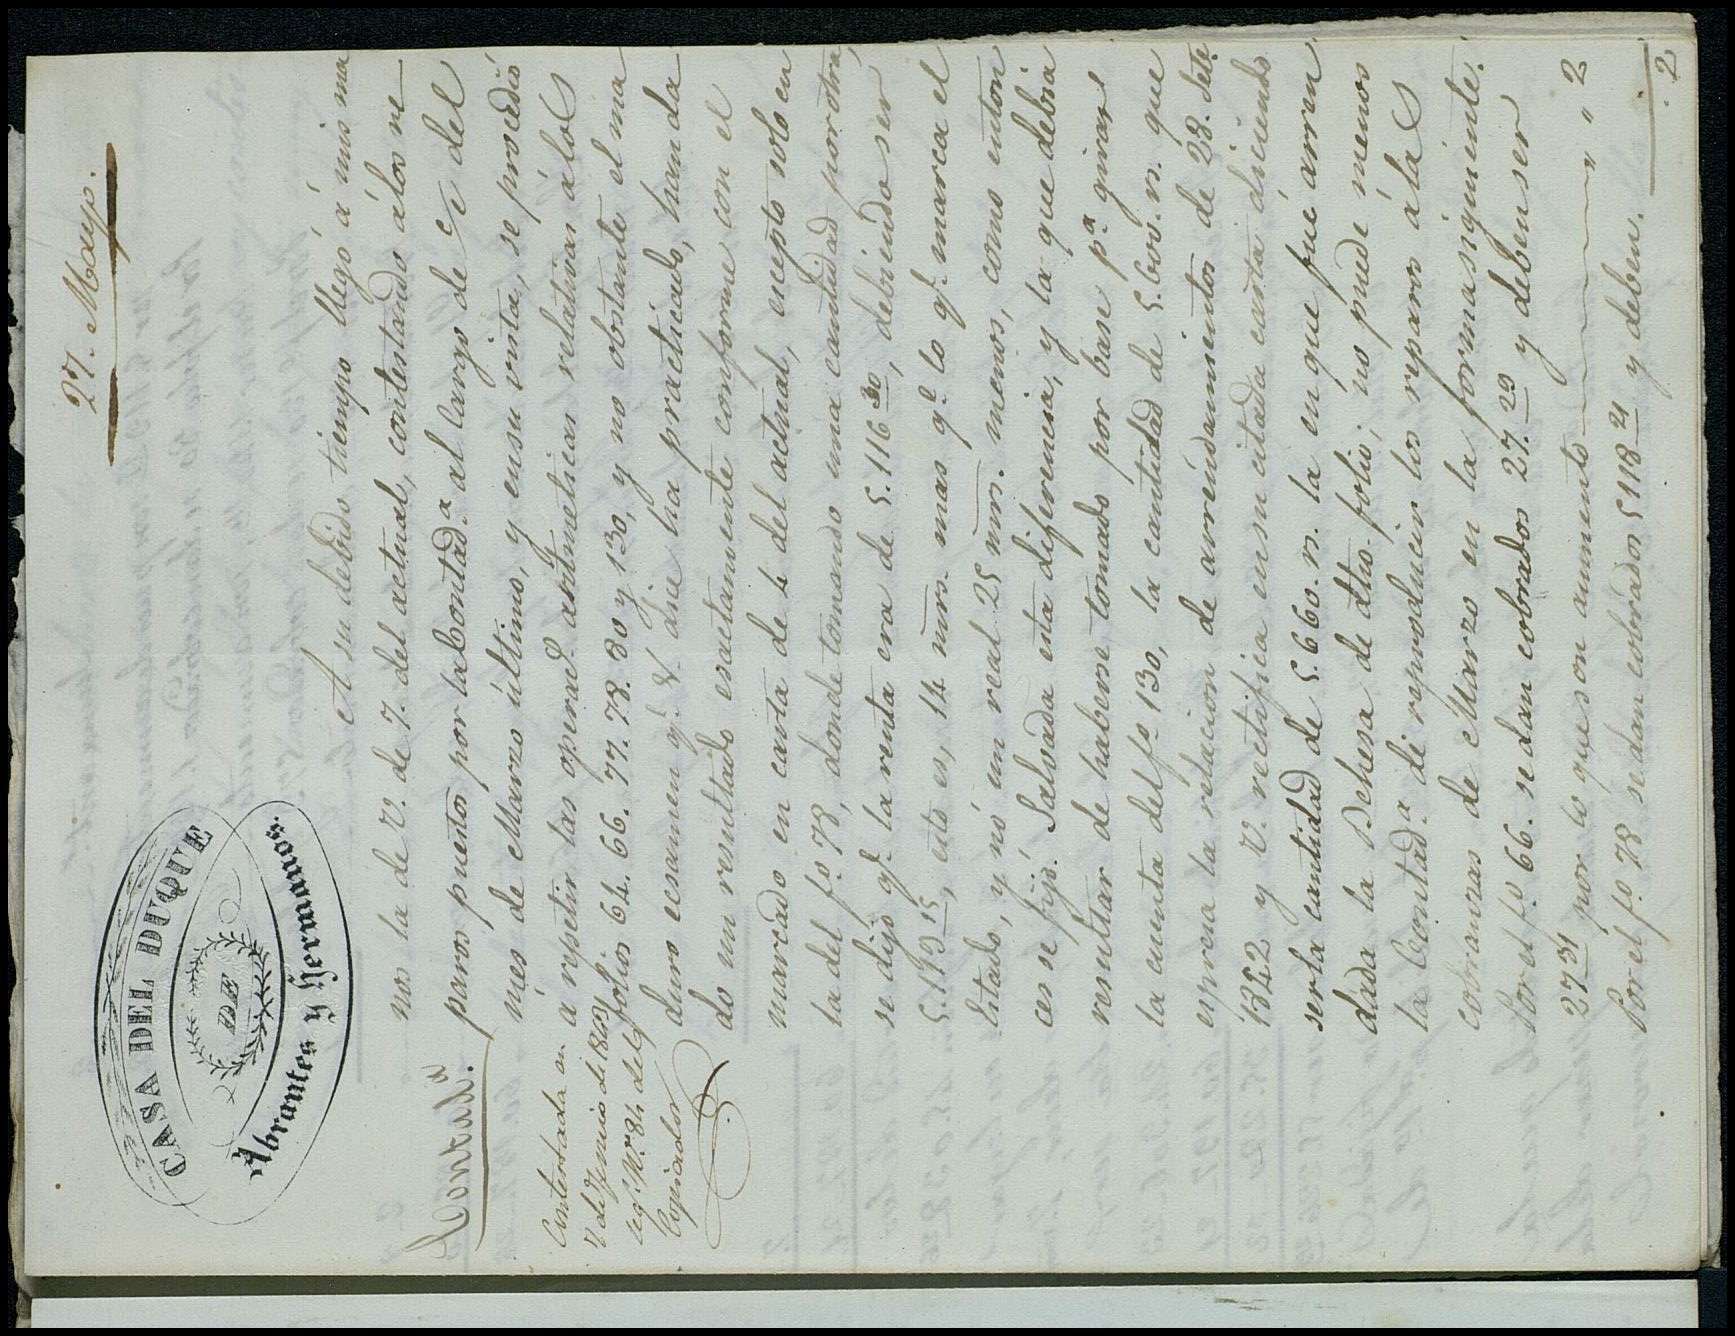 27. Mayo.
CASA DEL DUQUE
DE
Abrantes y Hermanos.
Contad.ª
A su debido tiempo llegó á mis ma
nos la de V. de 7. del actual, contestando á los re
paros puestos por la Contad.ª al largo de c/c del
mes de Marzo último, y en su vista, se procedió
a repetir las operac.s aritmeticas relativas á los
folios 64. 66. 77. 78. 80 y 130, y no obstante el ma
duro ecsamen q.e V. dice haa practicado, han da
do un resultado esactamente conforme con el
marcado en carta de 4 del actual, escepto solo en
la del f.º 78, donde tomando una cantidad por otra,
se dijo q.e la renta era de 5.116 30, debiendo ser
5.119 15, esto es, 14 mrs. mas q.e lo q.e marca el
citado, y nó un real 25 mrs. menos, como enton
ces se fijó. Salvada esta diferencia, y la que debia
resultar de haberse tomado por base p.ª girar
la cuenta del f.º 130, la cantidad de 5.600 r.n. que
espresa la relacion de arrendamientos de 28. Set.e
1842 y V. rectifica en su citada carta diciendo
ser la cantidad de 5.660. r.n. la en que fué arren
dada la Dehesa de dho. folio; no puede menos
la Contad.ª de reproducir los reparos á las
cobranzas de Marzo en la forma siguiente.
Por el f.º 66. se dan cobrados 27. 29 y deben ser
27 31 por lo que son aumento " " 2
Por el f.º 78 se dan cobrados 5118 21 y deben. . 2
Contestada en
7 de Junio de 1843
seg.n N.º 84 del
Copiador